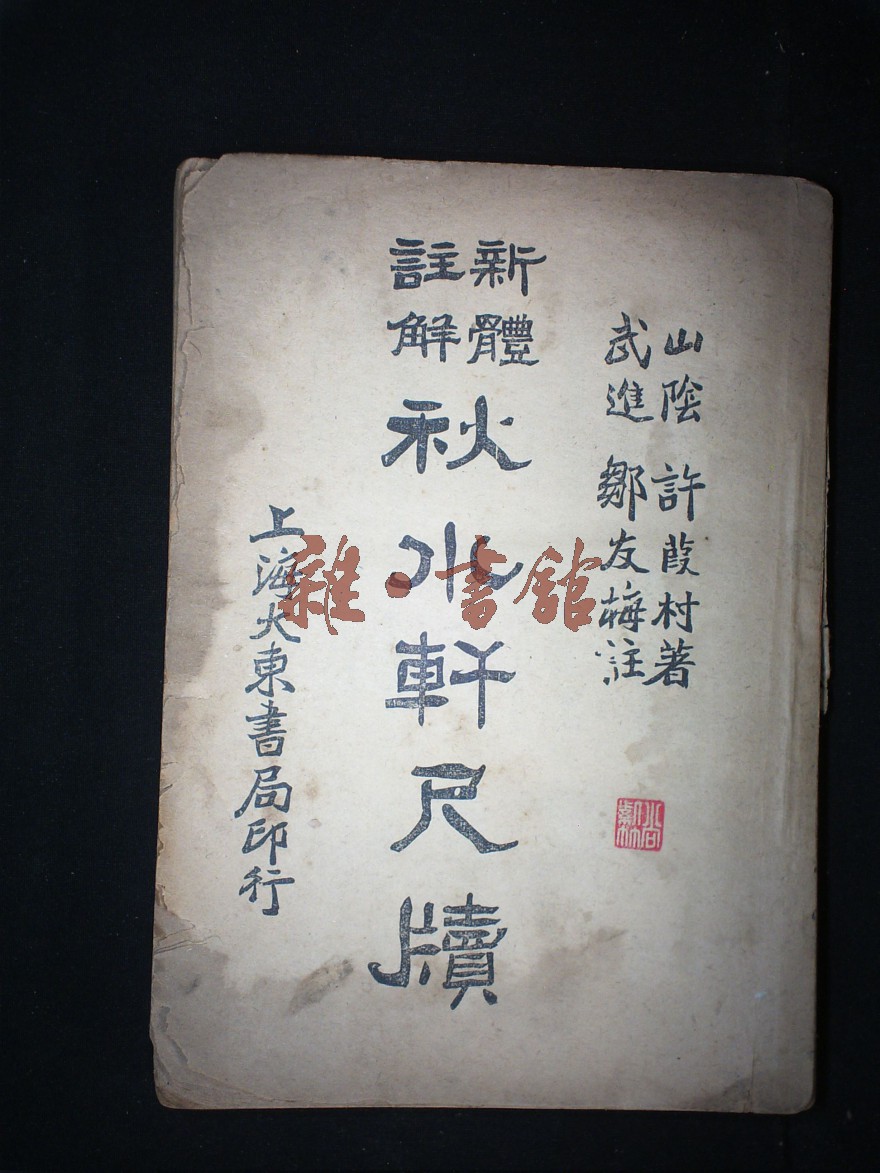 山陰 許葭村著
武進 鄒友梅註
新體
註解
秋水軒尺牘
上海大東書局印行
雜·書館